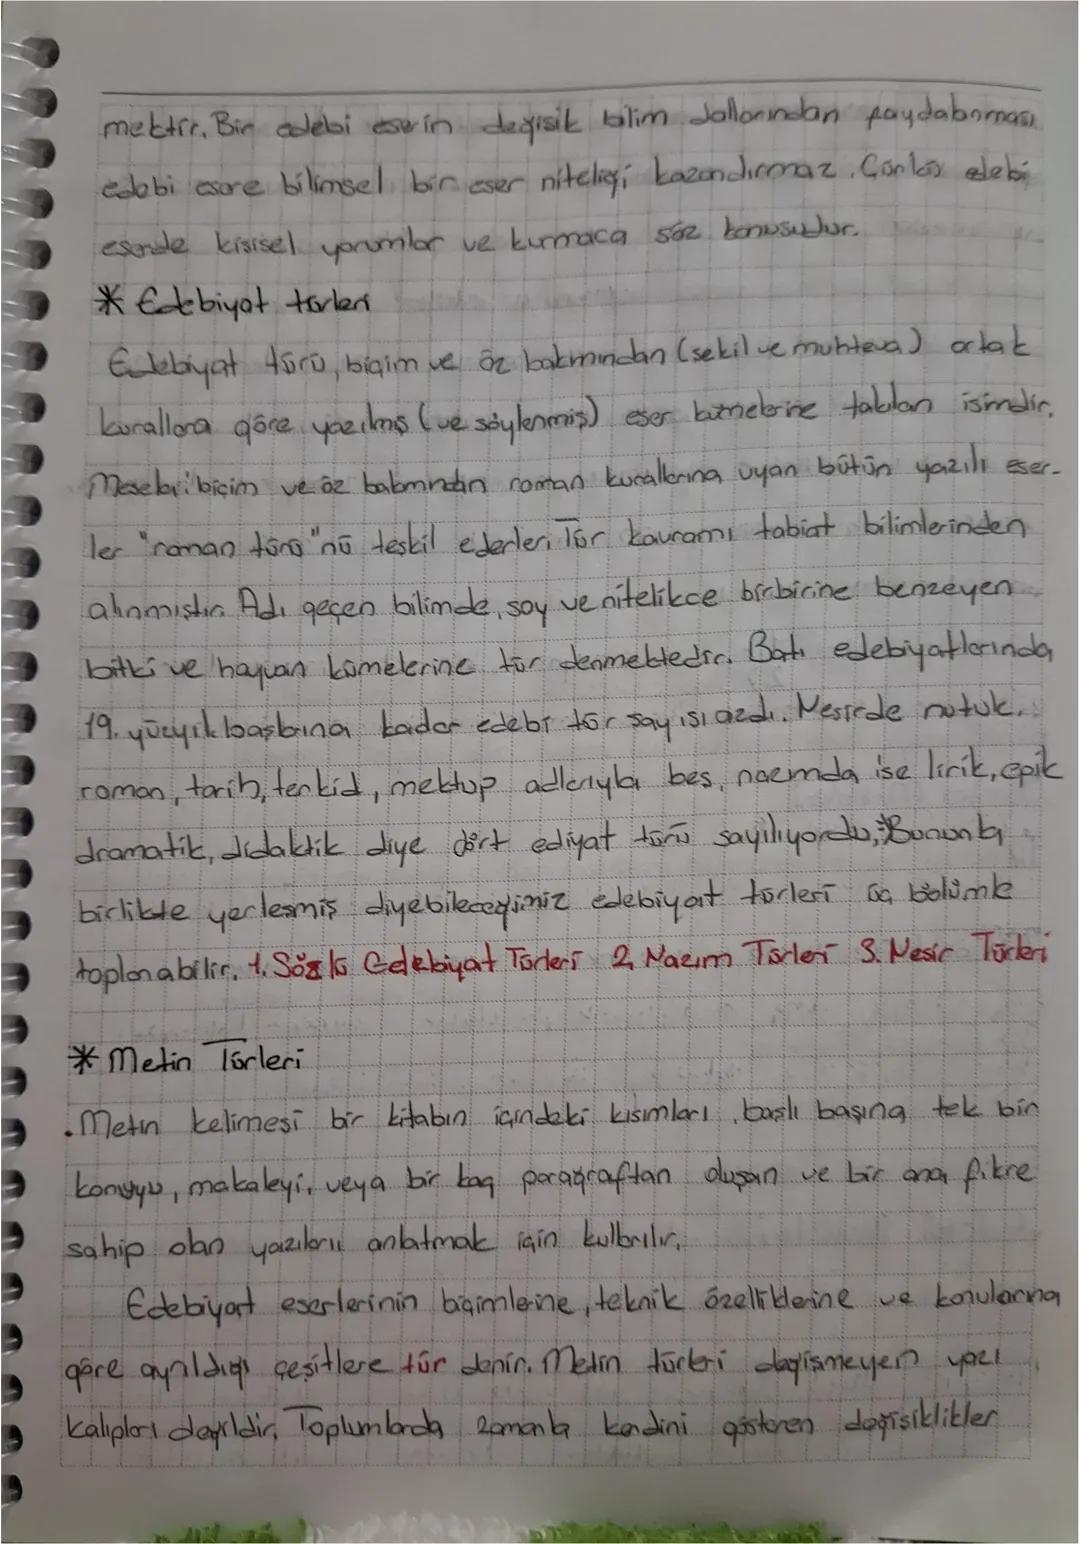 mektir. Bir edebi eserin değişik bilim dallarından faydalanması
edebi esere bilimsel bir eser niteliği kazandırmaz. Çünkü edebi
eserde kişisel yorumlar ve kurmaca söz konusudur.
* Edebiyat türleri
Edebiyat türü, biçim ve öz bakımından (şekil ve muhteva) ortak
kurallara göre yazılmış (ve söylenmiş) eser kümelerine takılan isimdir.
Mesela; biçim ve öz bakımından roman kurallarına uyan bütün yazılı eser-
ler "roman türü"nü teşkil ederler. Tür kavramı tabiat bilimlerinden
alınmıştır. Adı geçen bilimde, soy ve nitelikce birbirine benzeyen
bitki ve hayvan kümelerine tür denmektedir. Batı edebiyatlarında
19. yüzyıl başlarına kadar edebi tür sayısı azdı. Nesirde nutuk,
roman, tarih, tenkid, mektup adlarıyla beş, nazımda ise lirik, epik
dramatik, didaktik diye dört ediyat türü sayılıyordu. Bununla
birlikte yerleşmiş diyebileceğimiz edebiyat türleri üç bölümde
toplanabilir. 1. Sözlü Edebiyat Türleri 2. Nazım Türleri 3. Nesir Türleri
* Metin Türleri
. Metin kelimesi bir kitabın içindeki kısımları, başlı başına tek bir
konuyu, makaleyi, veya bir kaç paragraftan oluşan ve bir ana fikre
sahip olan yazıları anlatmak için kullanılır.
Edebiyat eserlerinin biçimlerine, teknik özelliklerine ve konularına
göre ayrıldığı çeşitlere tür denir. Metin türleri değişmeyen yazı
kalıpları değildir. Toplumlarda zamanla kendini gösteren değişiklikler